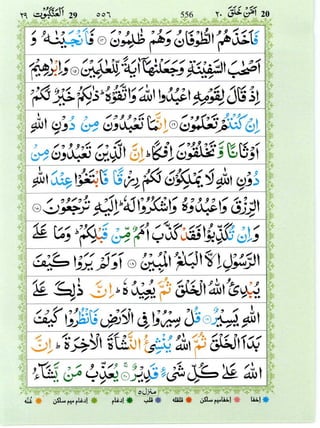 ٢٩ اَلْعَنْكَبُوْت 29 ٥٥٦ 556 ٢٠ اَمَّنْ خَلَقَ 20
فَاَخَذَهُمُ الطُّوْفَانُ وَهُمْ ظٰلِمُوْنَ ۝١٤ فَاَنْجَيْنٰهُ وَ
اَصْحٰبَ السَّفِيْنَةِ وَجَعَلْنٰهَاۤ اٰيَةً لِّلْعٰلَمِيْنَ ۝١٥ وَاِبْرٰهِيْمَ
اِذْ قَالَ لِقَوْمِهِ اعْبُدُوا اللّٰهَ وَاتَّقُوْهُ ؕ ذٰلِكُمْ خَيْرٌ لَّكُمْ
اِنْ كُنْتُمْ تَعْلَمُوْنَ ۝١٦ اِنَّمَا تَعْبُدُوْنَ مِنْ دُوْنِ اللّٰهِ
اَوْثَانًا وَّتَخْلُقُوْنَ اِفْكًا ؕ اِنَّ الَّذِيْنَ تَعْبُدُوْنَ مِنْ
دُوْنِ اللّٰهِ لَا يَمْلِكُوْنَ لَكُمْ رِزْقًا فَابْتَغُوْا عِنْدَ اللّٰهِ
الرِّزْقَ وَاعْبُدُوْهُ وَاشْكُرُوْا لَهٗ ؕ اِلَيْهِ تُرْجَعُوْنَ ۝١٧
وَاِنْ تُكَذِّبُوْا فَقَدْ كَذَّبَ اُمَمٌ مِّنْ قَبْلِكُمْ ؕ وَمَا عَلَى
الرَّسُوْلِ اِلَّا الْبَلٰغُ الْمُبِيْنُ ۝١٨ اَوَلَمْ يَرَوْا كَيْفَ
يُبْدِئُ اللّٰهُ الْخَلْقَ ثُمَّ يُعِيْدُهٗ ؕ اِنَّ ذٰلِكَ عَلَى
اللّٰهِ يَسِيْرٌ ۝١٩ قُلْ سِيْرُوْا فِي الْاَرْضِ فَانْظُرُوْا كَيْفَ
بَدَاَ الْخَلْقَ ثُمَّ اللّٰهُ يُنْشِئُ النَّشْاَةَ الْاٰخِرَةَ ؕ اِنَّ
اللّٰهَ عَلٰى كُلِّ شَيْءٍ قَدِيْرٌ ۝٢٠ يُعَذِّبُ مَنْ يَّشَآءُ
منزل ٥
اخفا اخفا میم ساکن قلقلہ قلب ادغام ادغام میم ساکن غنہ